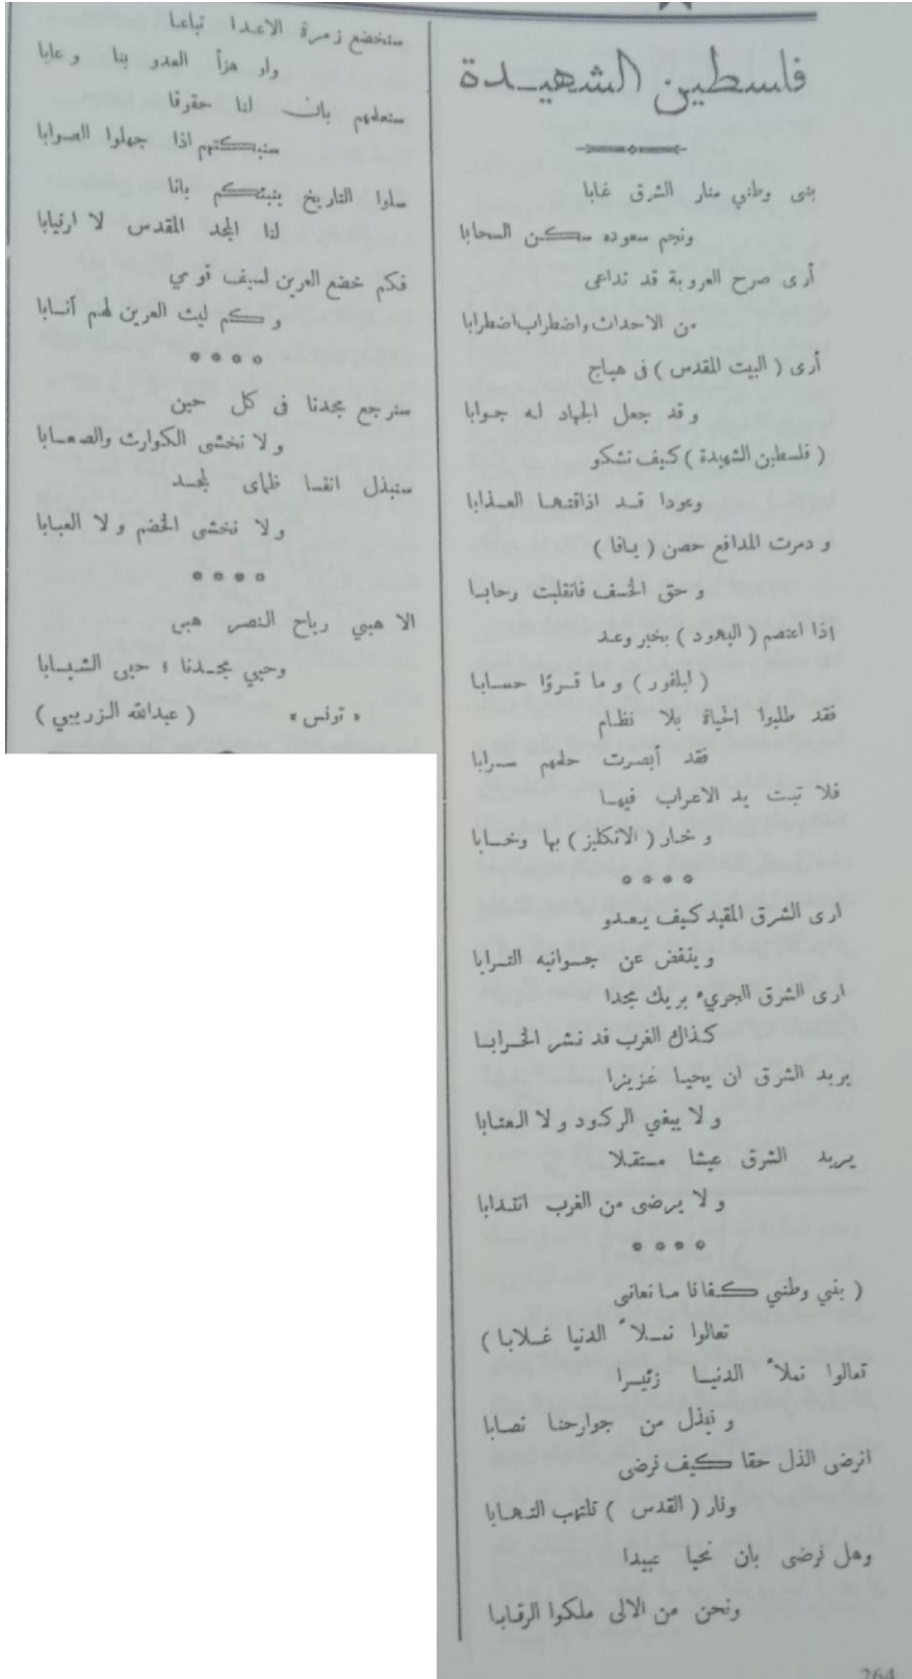 فلسطين الشهيدة
بنى وطني منار الشرق غابا
ونجم سعوده سكن السحابا
أرى صرح العروبة قد تداعى
من الاحداث واضطراب اضطرابا
أرى ( البيت المقدس ) فى هياج
وقد جعل الجهاد له جوابا
( فلسطين الشهيدة ) كيف تشكو
وعودا قد اذاقتها العذابا
ودمرت المدافع حصن ( يافا )
وحق الخسف فانقلبت رحابا
إذا اعتصم ( اليهود ) بخبر وعد
( لبلفور ) وما قرؤا حسابا
فقد طلبوا الحياة بلا نظام
فقد أبصرت حلمهم سرابا
فلا تبت يد الاعراب فيها
وخار ( الانكليز ) بها وخابا
* * * *
ارى الشرق المقيد كيف يعدو
وينفض عن جوانبه الترابا
ارى الشرق الجريء يريك مجدا
كذاك الغرب قد نشر الخرابا
يريد الشرق ان يحيا عزيزا
ولا يبغي الركود ولا العتابا
يريد الشرق عيشا مستقلا
ولا يرضى من الغرب انتدابا
* * * *
( بني وطني كفانا ما نعانى
تعالوا نملأ الدنيا غلابا )
تعالوا نملأ الدنيا زئيرا
ونبذل من جوارحنا نصابا
انرضى الذل حقا كيف نرضى
ونار ( القدس ) تلتهب التهابا
وهل نرضى بان نحيا عبيدا
ونحن من الالى ملكوا الرقابا
ستخضع زمرة الاعدا تباعا
ولو هزأ العدو بنا وعابا
سنعلمهم بان لنا حقوقا
سنبكتهم اذا جهلوا الصوابا
سلوا التاريخ ينبئكم بانا
لنا المجد المقدس لا ارتيابا
فكم خضع العرين لسيف قومي
وكم ليث العرين لهم أنابا
* * * *
سنرجع مجدنا فى كل حين
ولا نخشى الكوارث والصعابا
سنبذل انفسا ظمأى لمجد
ولا نخشى الخضم ولا العبابا
* * * *
الا هبي رياح النصر هبى
وحيي مجدنا ؛ حيى الشبابا
« تونس » ( عبدالله الزريبي )
264